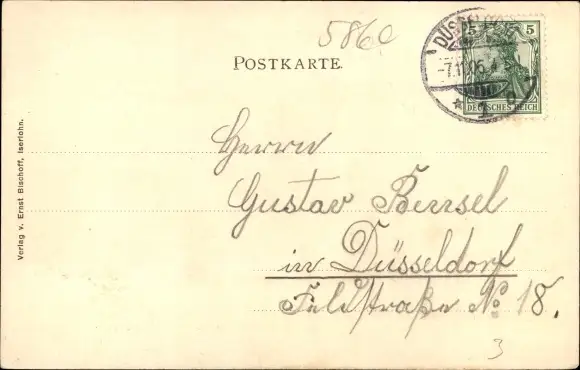 586
POSTKARTE.
DÜSSELD
-7.11.05.
5
DEUTSCHES REICH
Verlag v. Ernst Bischoff, Iserlohn.
Herrn
Gustav Bensel
in Düsseldorf
Feldstraße No 18.
3